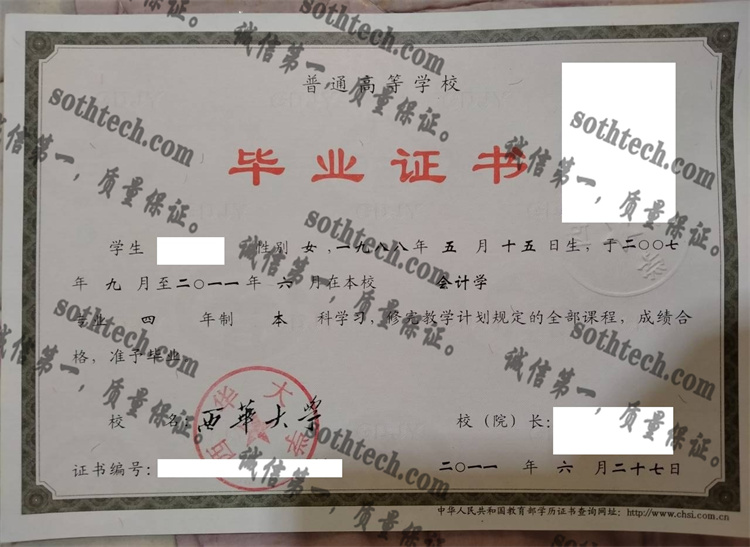 普通高等学校
毕业证书
学生 性别 女 ,一九八八年 五 月 十五 日生, 于二〇〇七
年 九 月至二〇一一年 六 月在本校 会计学
专业 四 年制 本 科学习, 修完教学计划规定的全部课程, 成绩合
格, 准予毕业。
校 名: 西華大學
校 (院) 长:
证书编号:
二〇一一 年 六 月二十七日
中华人民共和国教育部学历证书查询网址: http://www.chsi.com.cn
西华大学
sothtech.com
诚信第一,质量保证。
sothtech.com
诚信第一,质量保证。
sothtech.com
诚信第一,质量保证。
sothtech.com
诚信第一,质量保证。
sothtech.com
诚信第一,质量保证。
sothtech.com
诚信第一,质量保证。
sothtech.com
诚信第一,质量保证。